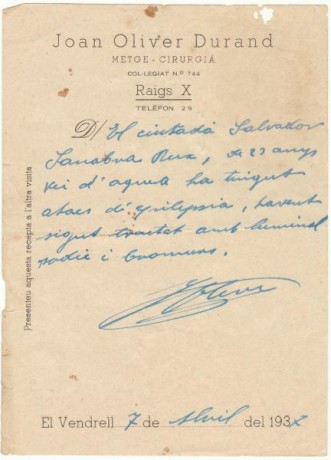 Joan Oliver Durand
METGE - CIRURGIÀ
COL·LEGIAT N.º 744
Raigs X
TELÈFON 25
D/ El ciutadà Salvador
Sanabra Ruz, de 27 anys
vei d'aquea ha tingut
atacs d'epilepsia, havent
sigut tractat amb luminal
sodic i bromurs.
Presenteu aquesta recepta a l'altra visita
El Vendrell 7 de Abril del 1937